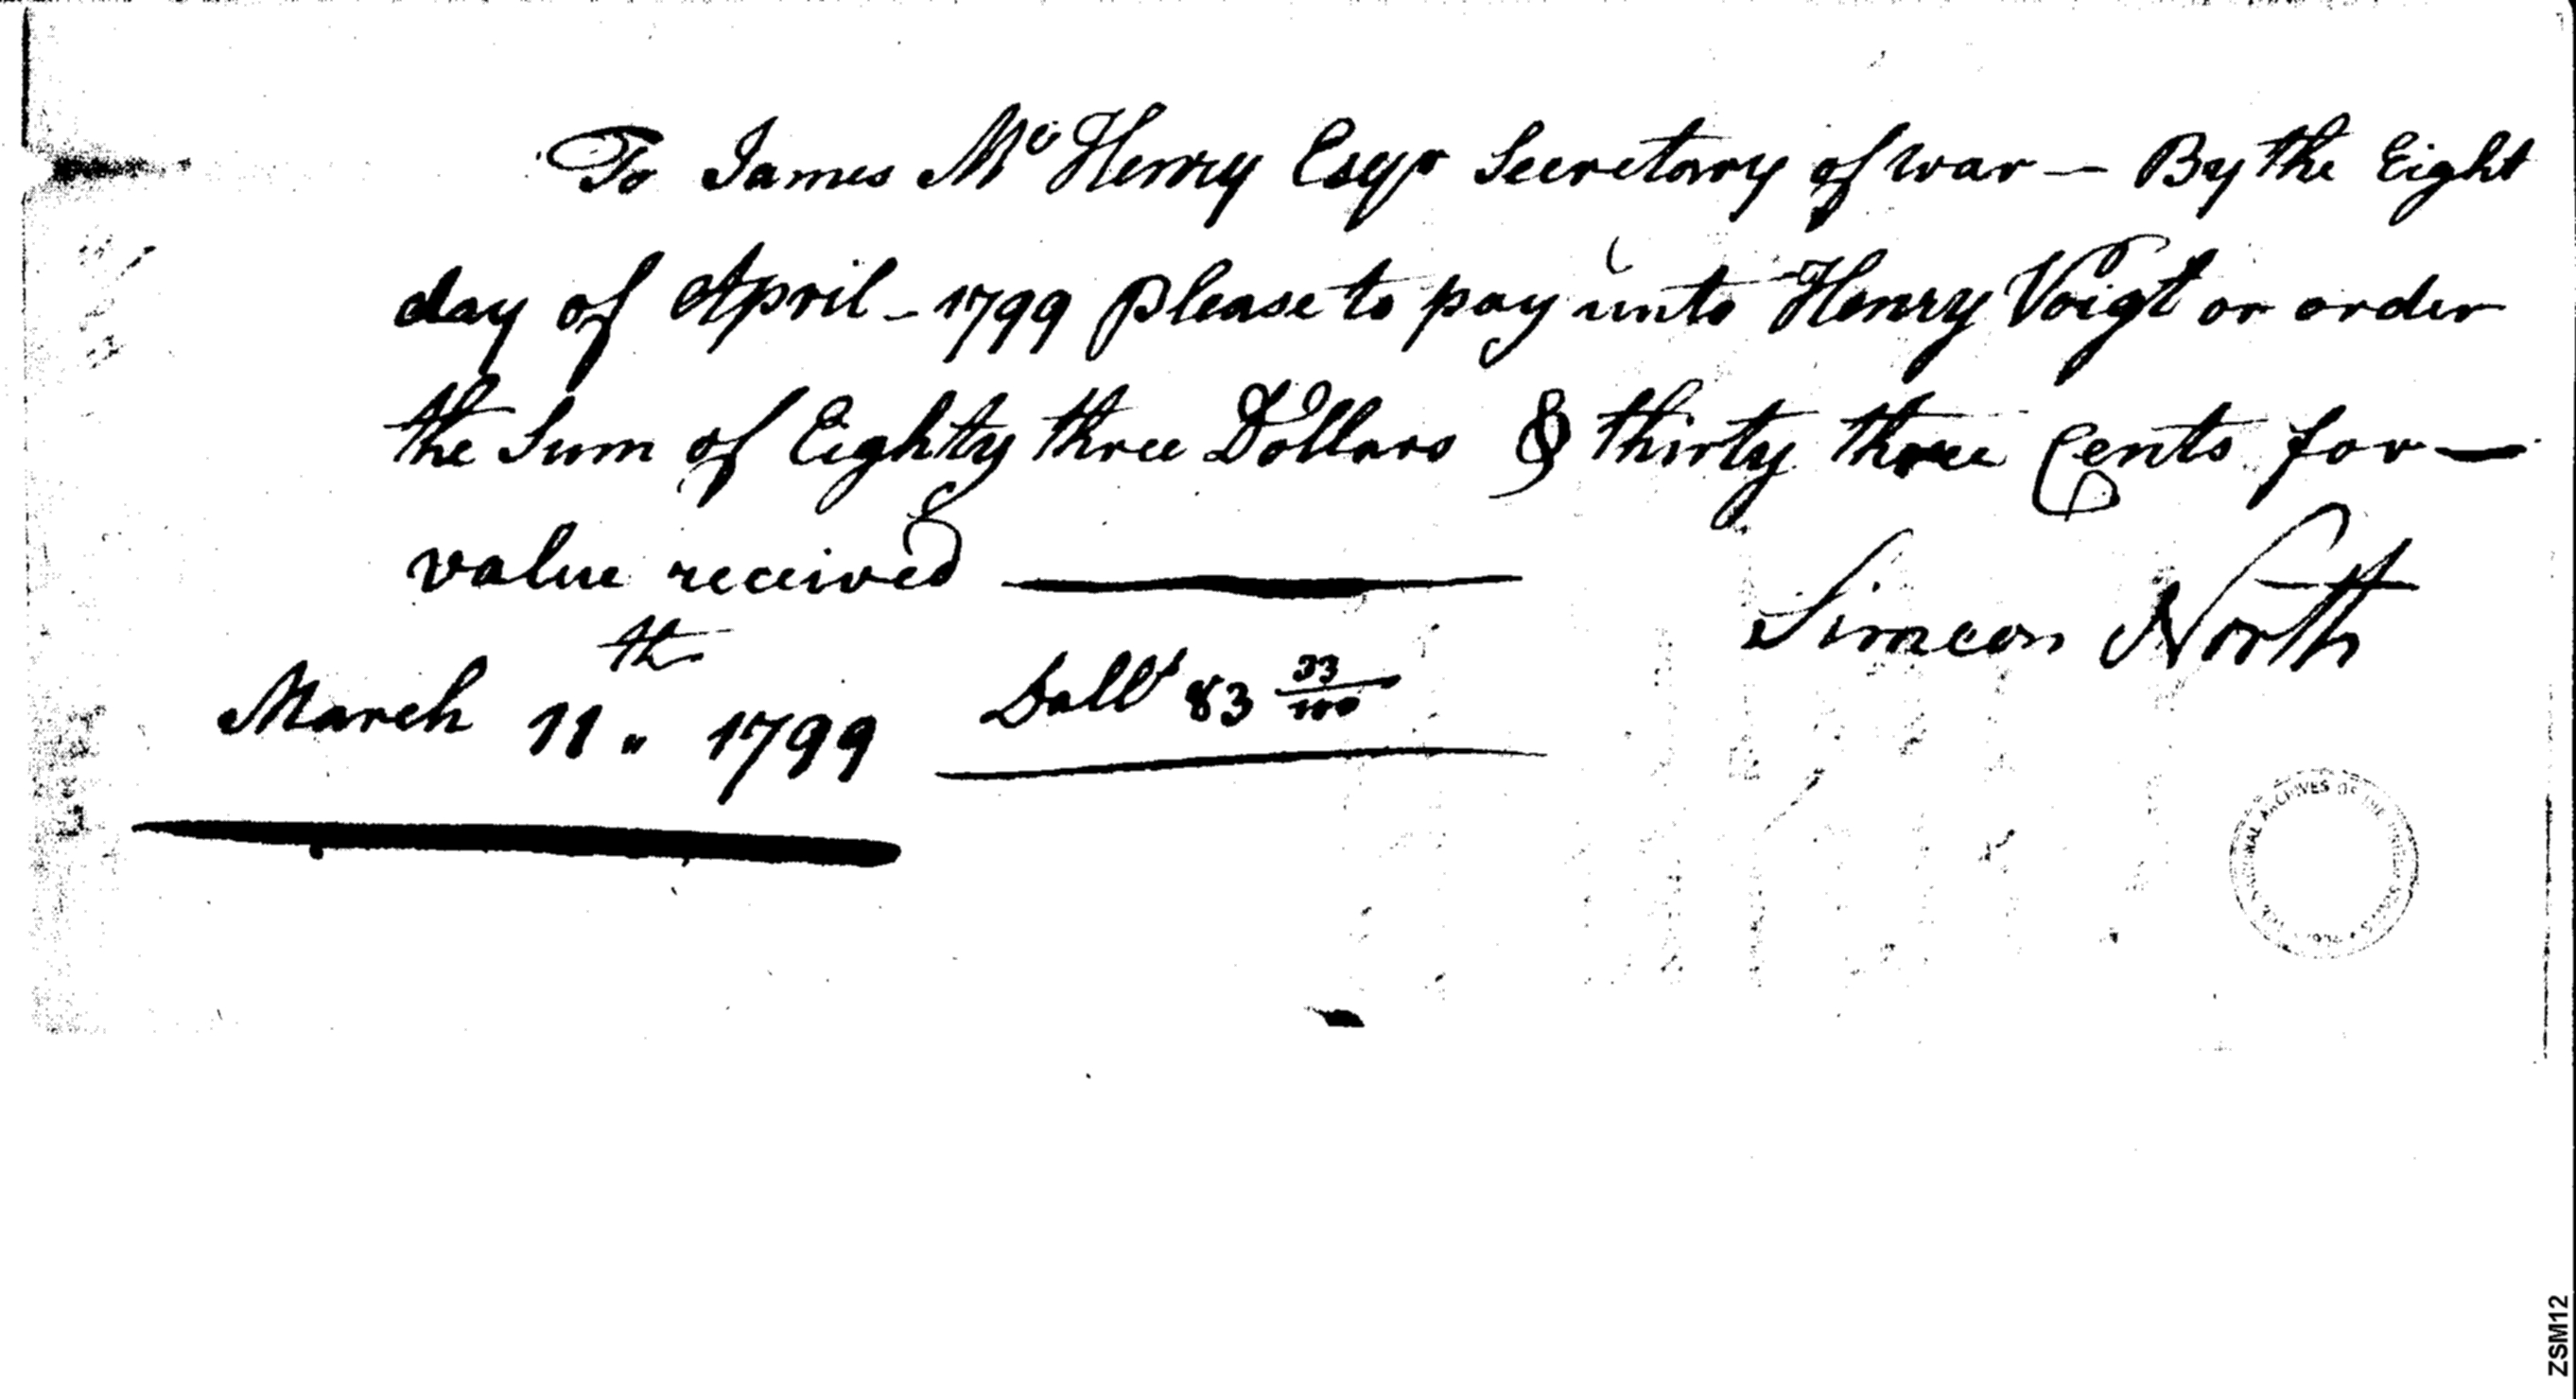 To James Mc Henry Esqr Secretary of war — By the Eight
day of April - 1799 please to pay unto Henry Voigt or order
the Sum of Eighty three Dollars & thirty three Cents for —
value received ———
Simeon North
March 11th 1799 Dolls 83 33/100
NATIONAL ARCHIVES OF THE UNITED STATES
ZSM12